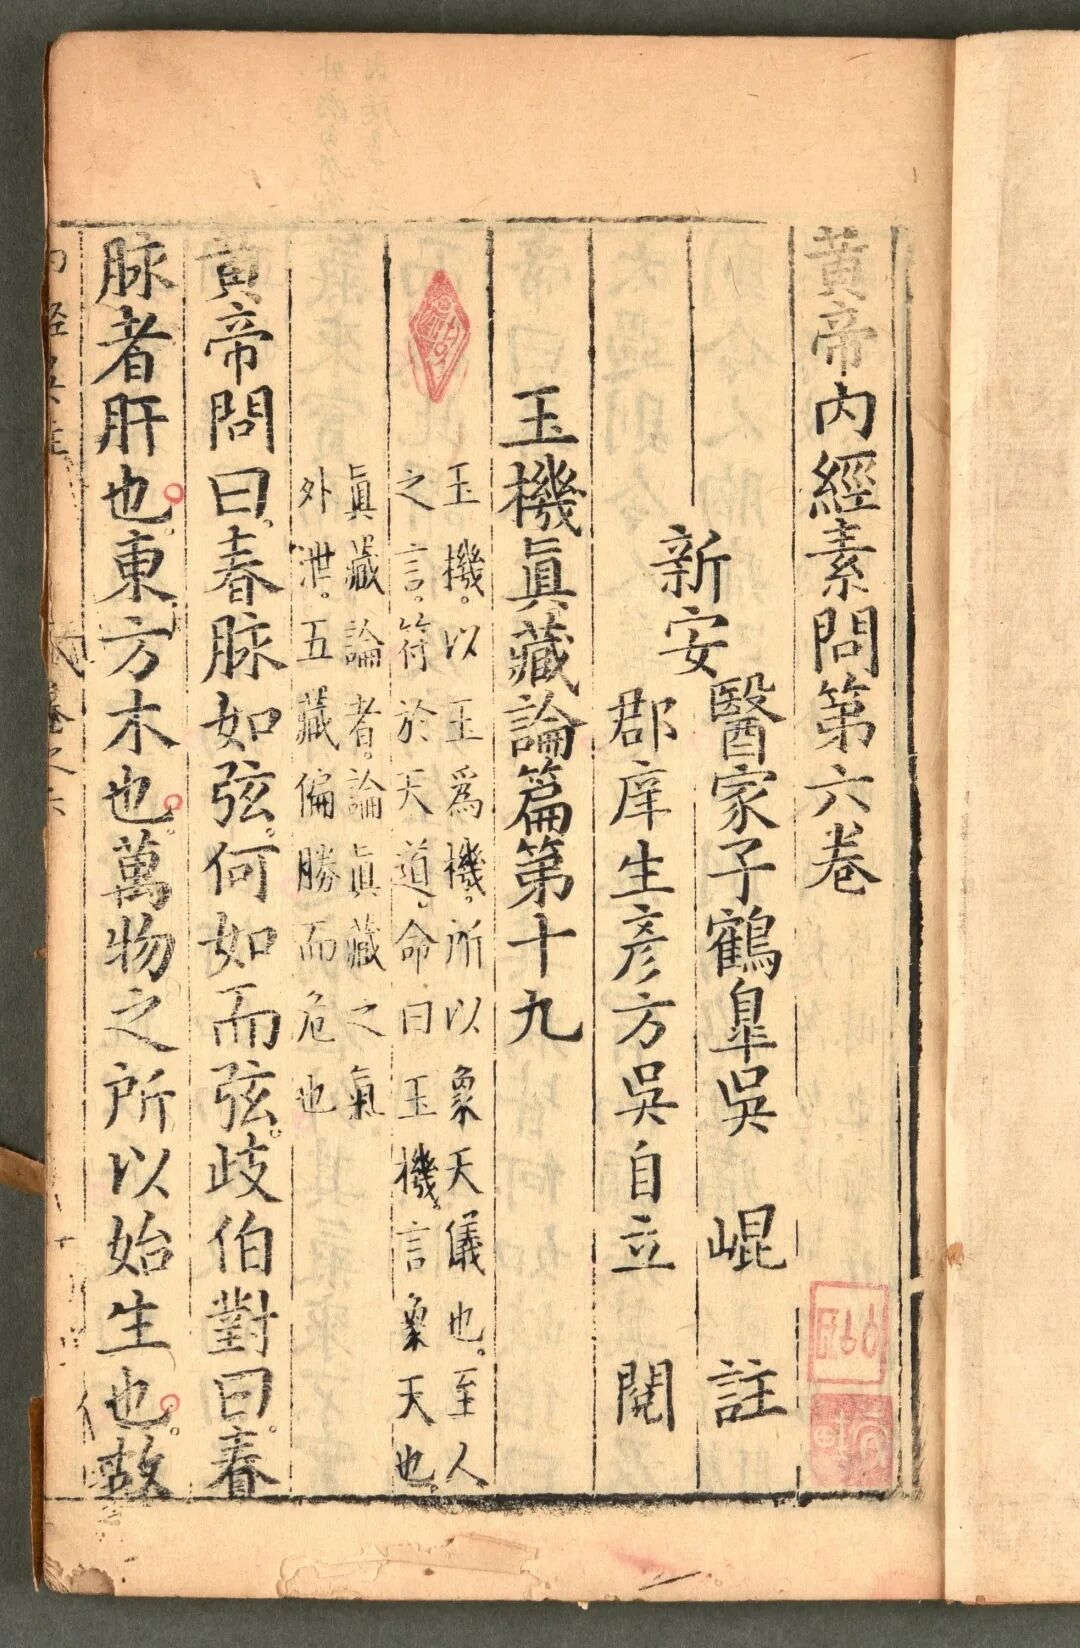 黄帝內經素問第六卷
新安
醫家子鶴臯吳 崐 註
郡庠生彥方吳自立 閱
玉機眞藏論篇第十九
玉機。以玉爲機。所以象天儀也。至人
之言。符於天道。命曰玉機。言象天也。
眞藏論者。論眞藏之氣
外泄。五藏偏勝而危也
黄帝問曰。春脉如弦。何如而弦。歧伯對曰。春
脉者肝也。東方木也。萬物之所以始生也。故